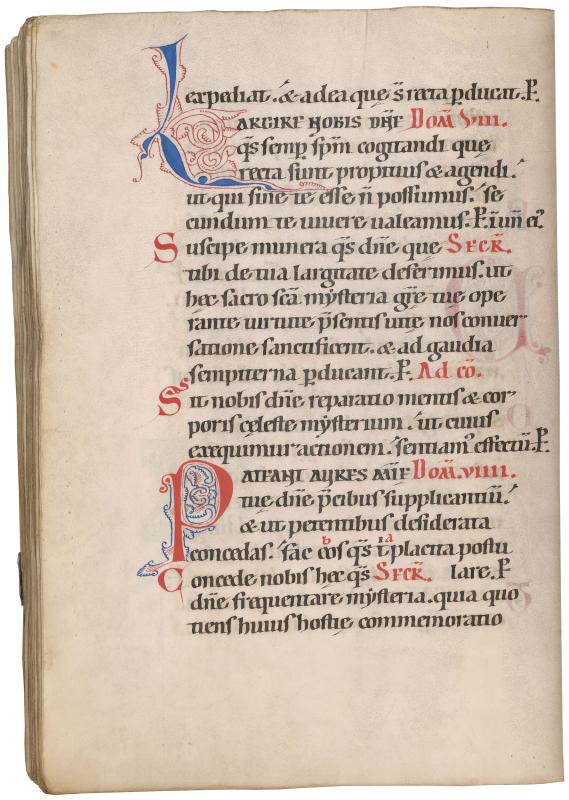 expediat. & a dea que s̄ recta p̱ducat. P̱.
LARGIRE NOBIS DNĒ Dom̄. VIII.
q̄s semp̱ sp̄m cogitandi que
recta sunt propitius & agendi.
ut qui sine te esse ñ possumus. se
cundum te uiuere ualeamus. P̱. i un̄ ei'.
Suscipe munera q̄s dn̄e que SECR̄.
tibi de tua largitate deferimus. ut
hec sacro sc̄a mẏsteria gr̄e tue ope
rante uirtute p̄sentis uite nos conuer
satione sanctificent. & ad gaudia
sempiterna p̱ducant. P̱. Ad cō.
Sit nobis dn̄e reparatio mentis & cor
poris cęleste mẏsterium. ut cuius
exequimur actionem. sentiam' effectū. P̱.
PATEANT AURES Dom̄. VIIII.
tue dn̄e p̄cibus supplicantiū.
& ut petentibus desiderata
concedas. fac b eos q̄s t̄ a placita postu
Concede nobis hec q̄s SECR̄. lare. P̱
dn̄e frequentare mẏsteria. quia quo
tiens huius hostię commemoratio